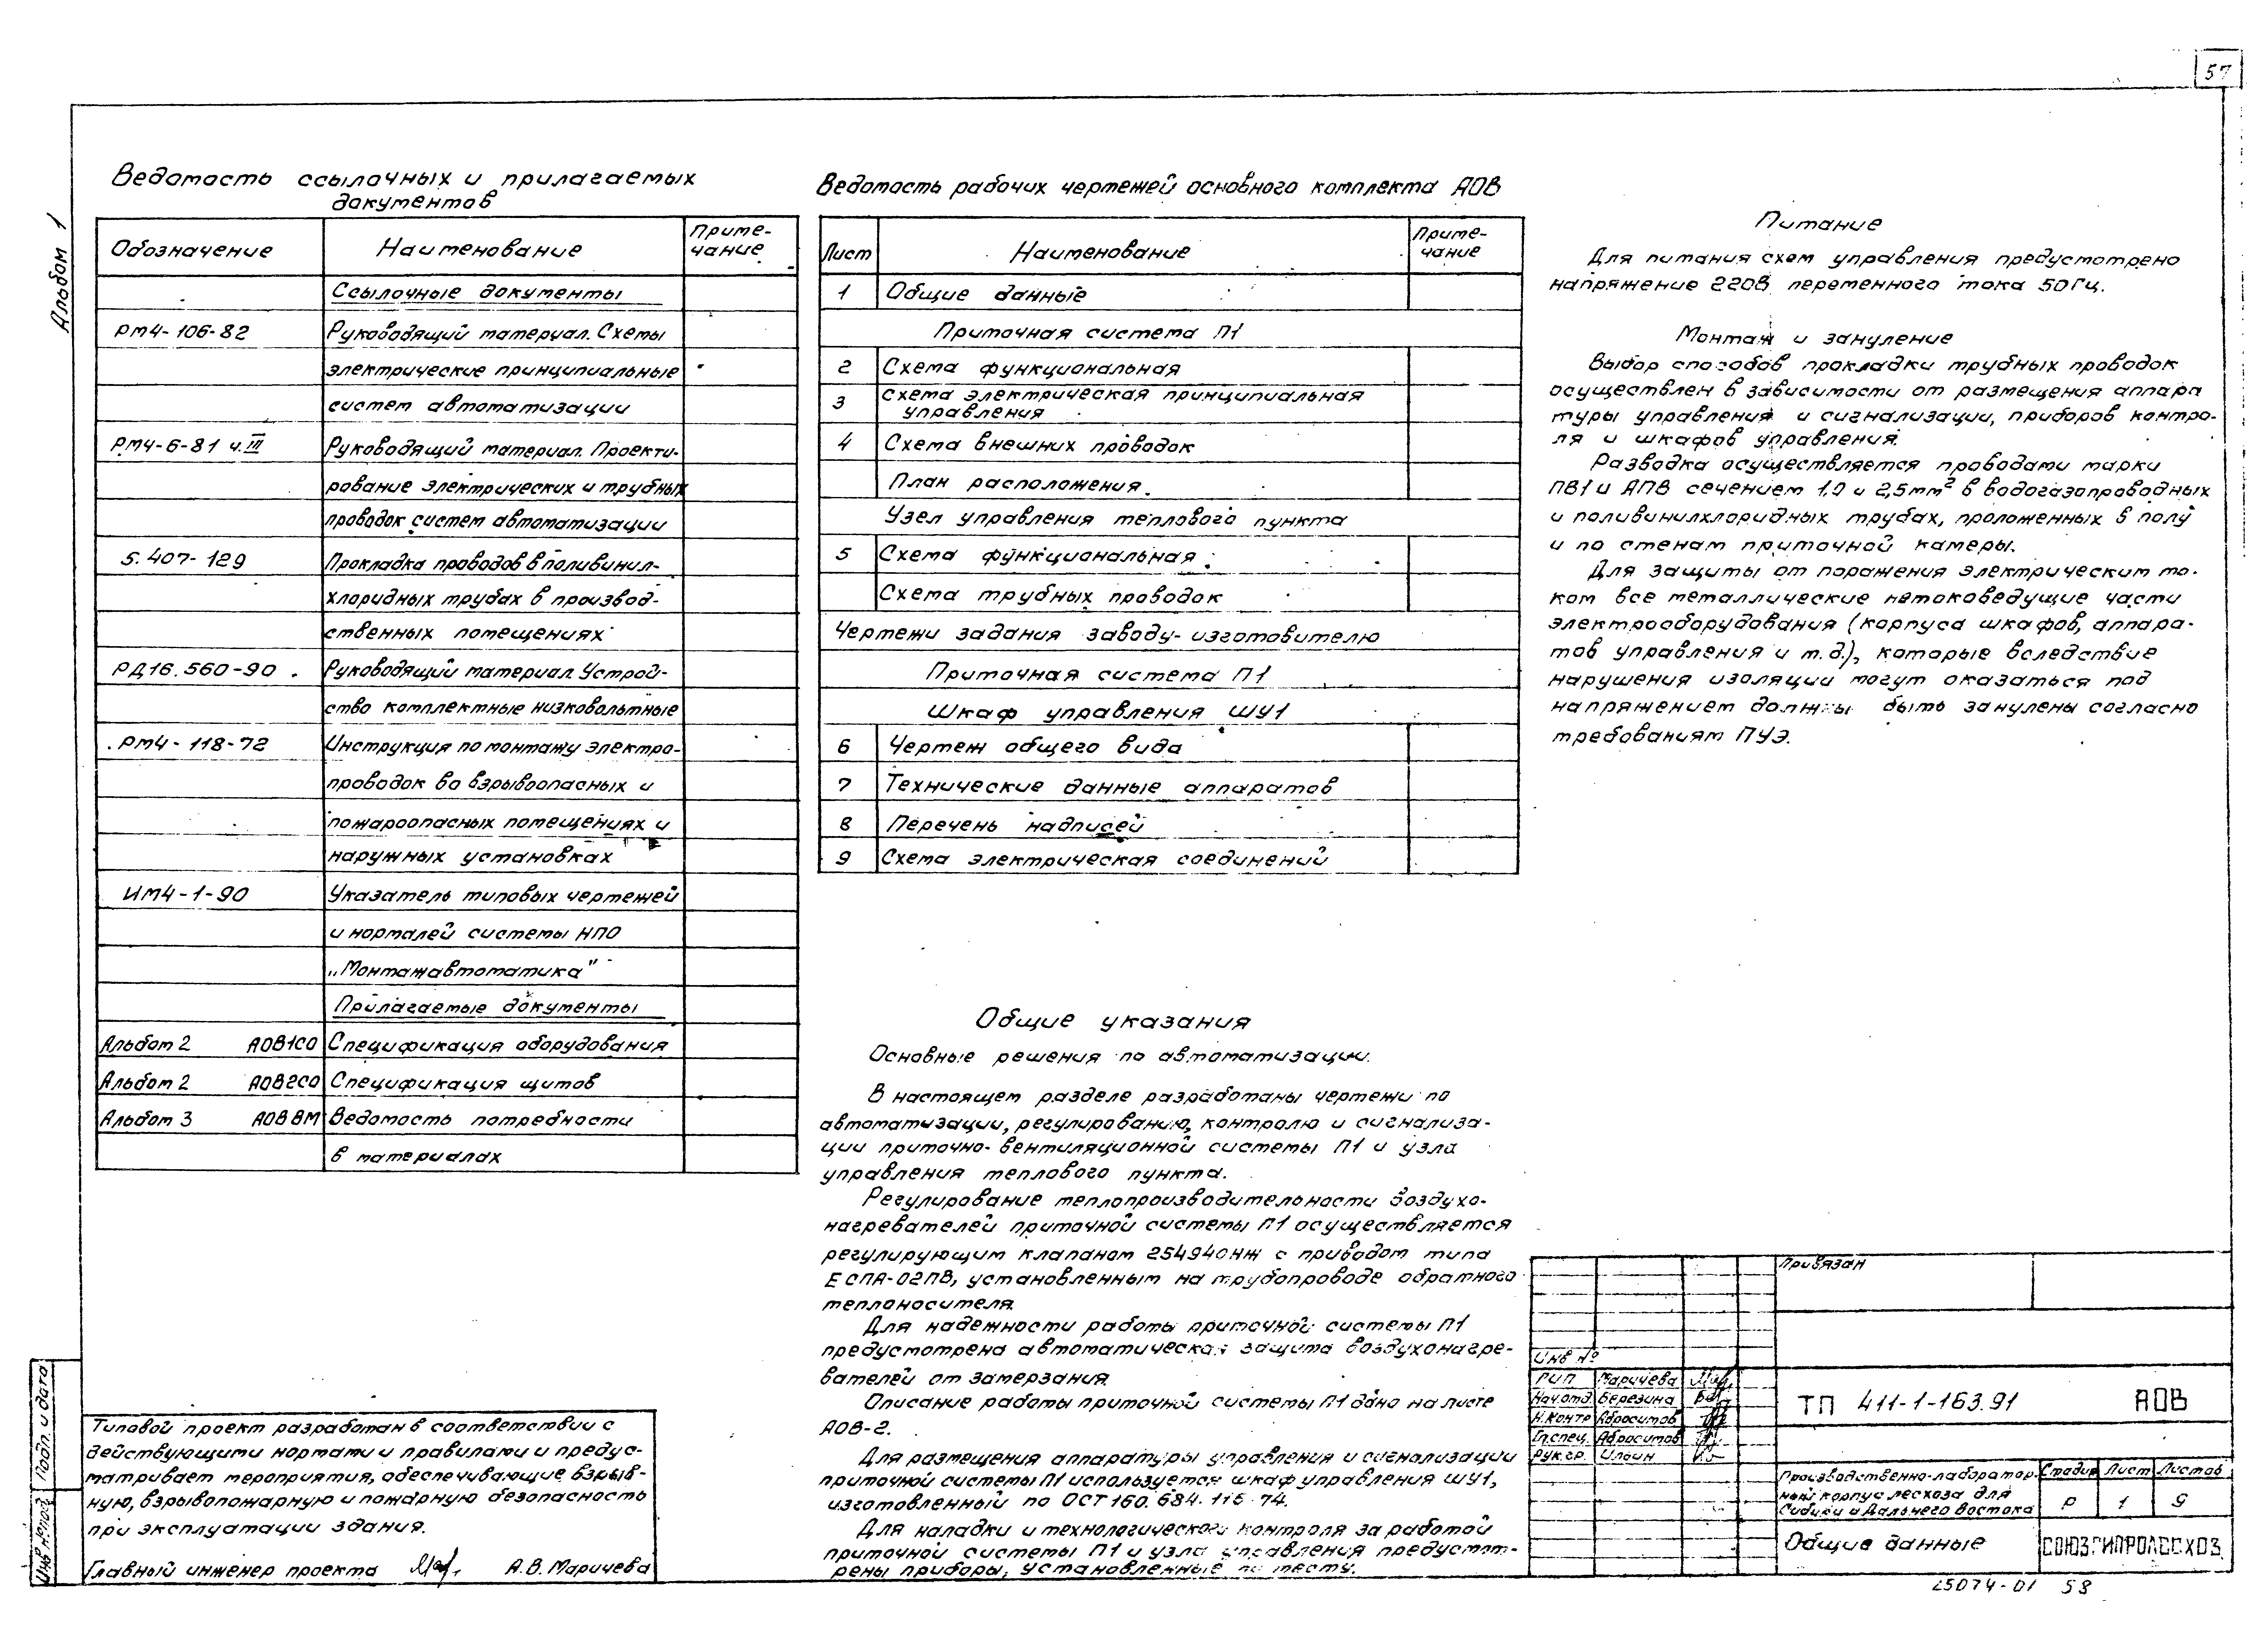 57
Альбом 1
Ведомость ссылочных и прилагаемых
документов
Обозначение Наименование Приме-
чание
Ссылочные документы
РМ4-106-82 Руководящий материал. Схемы
электрические принципиальные
систем автоматизации
РМ4-6-81 ч.III Руководящий материал. Проекти-
рование электрических и трубных
проводок систем автоматизации
5.407-129 Прокладка проводов в поливинил-
хлоридных трубах в производ-
ственных помещениях
РД16.560-90 Руководящий материал. Устрой-
ство комплектные низковольтные
РМ4-118-72 Инструкция по монтажу электро-
проводок во взрывоопасных и
пожароопасных помещениях и
наружных установках
ИМ4-1-90 Указатель типовых чертежей
и нормалей системы НПО
„Монтажавтоматика"
Прилагаемые документы
Альбом 2 АОВ1СО Спецификация оборудования
Альбом 2 АОВ2СО Спецификация щитов
Альбом 3 АОВ ВМ Ведомость потребности
в материалах
Типовой проект разработан в соответствии с
действующими нормами и правилами и предус-
матривает мероприятия, обеспечивающие взрыв-
ную, взрывопожарную и пожарную безопасность
при эксплуатации здания.
Главный инженер проекта А.В. Маричева
Подп. и дата
Инв.№ подл.
Ведомость рабочих чертежей основного комплекта АОВ
Лист Наименование Приме-
чание
1 Общие данные
Приточная система П1
2 Схема функциональная
3 Схема электрическая принципиальная
управления
4 Схема внешних проводок
План расположения.
Узел управления теплового пункта
5 Схема функциональная
Схема трубных проводок
Чертежи задания заводу-изготовителю
Приточная система П1
Шкаф управления ШУ1
6 Чертеж общего вида
7 Технические данные аппаратов
8 Перечень надписей
9 Схема электрическая соединений
Общие указания
Основные решения по автоматизации.
В настоящем разделе разработаны чертежи по
автоматизации, регулированию, контролю и сигнализа-
ции приточно-вентиляционной системы П1 и узла
управления теплового пункта.
Регулирование теплопроизводительности воздухо-
нагревателей приточной системы П1 осуществляется
регулирующим клапаном 254940нж с приводом типа
ЕСПА-02ПВ, установленным на трубопроводе обратного
теплоносителя.
Для надежности работы приточной системы П1
предусмотрена автоматическая защита воздухонагре-
вателей от замерзания.
Описание работы приточной системы П1 дано на листе
АОВ-2.
Для размещения аппаратуры управления и сигнализации
приточной системы П1 используется шкаф управления ШУ1,
изготовленный по ОСТ 160.684.116-74.
Для наладки и технологического контроля за работой
приточной системы П1 и узла управления предусмот-
рены приборы, установленные по месту.
Питание
Для питания схем управления предусмотрено
напряжение 220В переменного тока 50Гц.
Монтаж и зануление
Выбор способов прокладки трубных проводок
осуществлен в зависимости от размещения аппара
туры управления и сигнализации, приборов контро-
ля и шкафов управления.
Разводка осуществляется проводами марки
ПВ1 и АПВ сечением 1,0 и 2,5мм² в водогазопроводных
и поливинилхлоридных трубах, проложенных в полу
и по стенам приточной камеры.
Для защиты от поражения электрическим то-
ком все металлические нетоковедущие части
электрооборудования (корпуса шкафов, аппара-
тов управления и т.д.), которые вследствие
нарушения изоляции могут оказаться под
напряжением должны быть занулены согласно
требованиям ПУЭ.
Привязан
Инв №
ГИП Маричева
Нач.отд. Березина
Н.контр Абросимов
Гл.спец. Абросимов
Рук.гр. Ильин
ТП 411-1-163.91 АОВ
Производственно-лаборатор-
ный корпус лесхоза для
Сибири и Дальнего Востока
Стадия Лист Листов
Р 1 9
Общие данные
СОЮЗГИПРОЛЕСХОЗ
25074-01 58